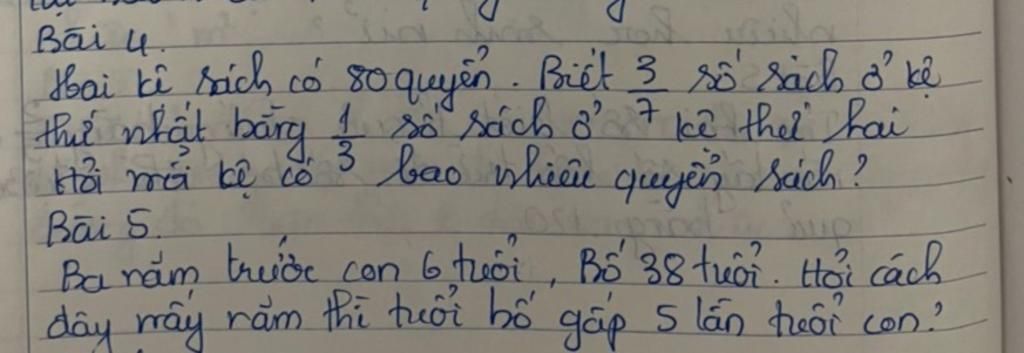 Bài 4.
Hai kệ sách có 80 quyển. Biết 3/7 số sách ở kệ
thứ nhất bằng 1/3 số sách ở kệ thứ hai
Hỏi mỗi kệ có bao nhiêu quyển sách?
Bài 5.
Ba năm trước con 6 tuổi, Bố 38 tuổi. Hỏi cách
đây mấy năm thì tuổi bố gấp 5 lần tuổi con?